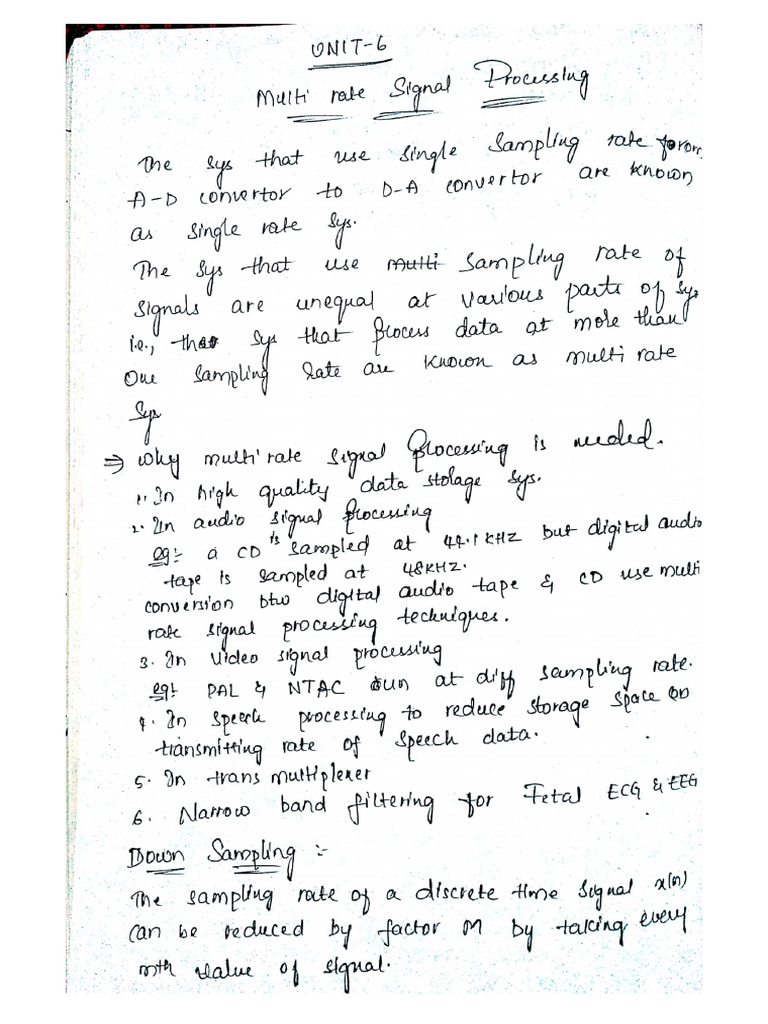 UNIT-6
Multi rate Signal Processing
The sys that use single sampling rate from
A-D convertor to D-A convertor are known
as single rate sys.
The sys that use multi sampling rate of
signals are unequal at various parts of sys
i.e., the sys that process data at more than
One sampling rate are known as multi rate
sys
⇒ Why multi rate signal processing is needed.
1. In high quality data storage sys.
2. In audio signal processing
eg:- a CD is sampled at 44.1 KHZ but digital audio
tape is sampled at 48KHZ.
conversion btw digital audio tape & CD use multi
rate signal processing techniques.
3. In video signal processing
eg:- PAL & NTAC run at diff sampling rate.
4. In speech processing to reduce storage space or
transmitting rate of speech data.
5. In trans multiplexer
6. Narrow band filtering for Fetal ECG & EEG
Down Sampling :-
The sampling rate of a discrete time signal x(n)
can be reduced by factor M by taking every
mth value of signal.